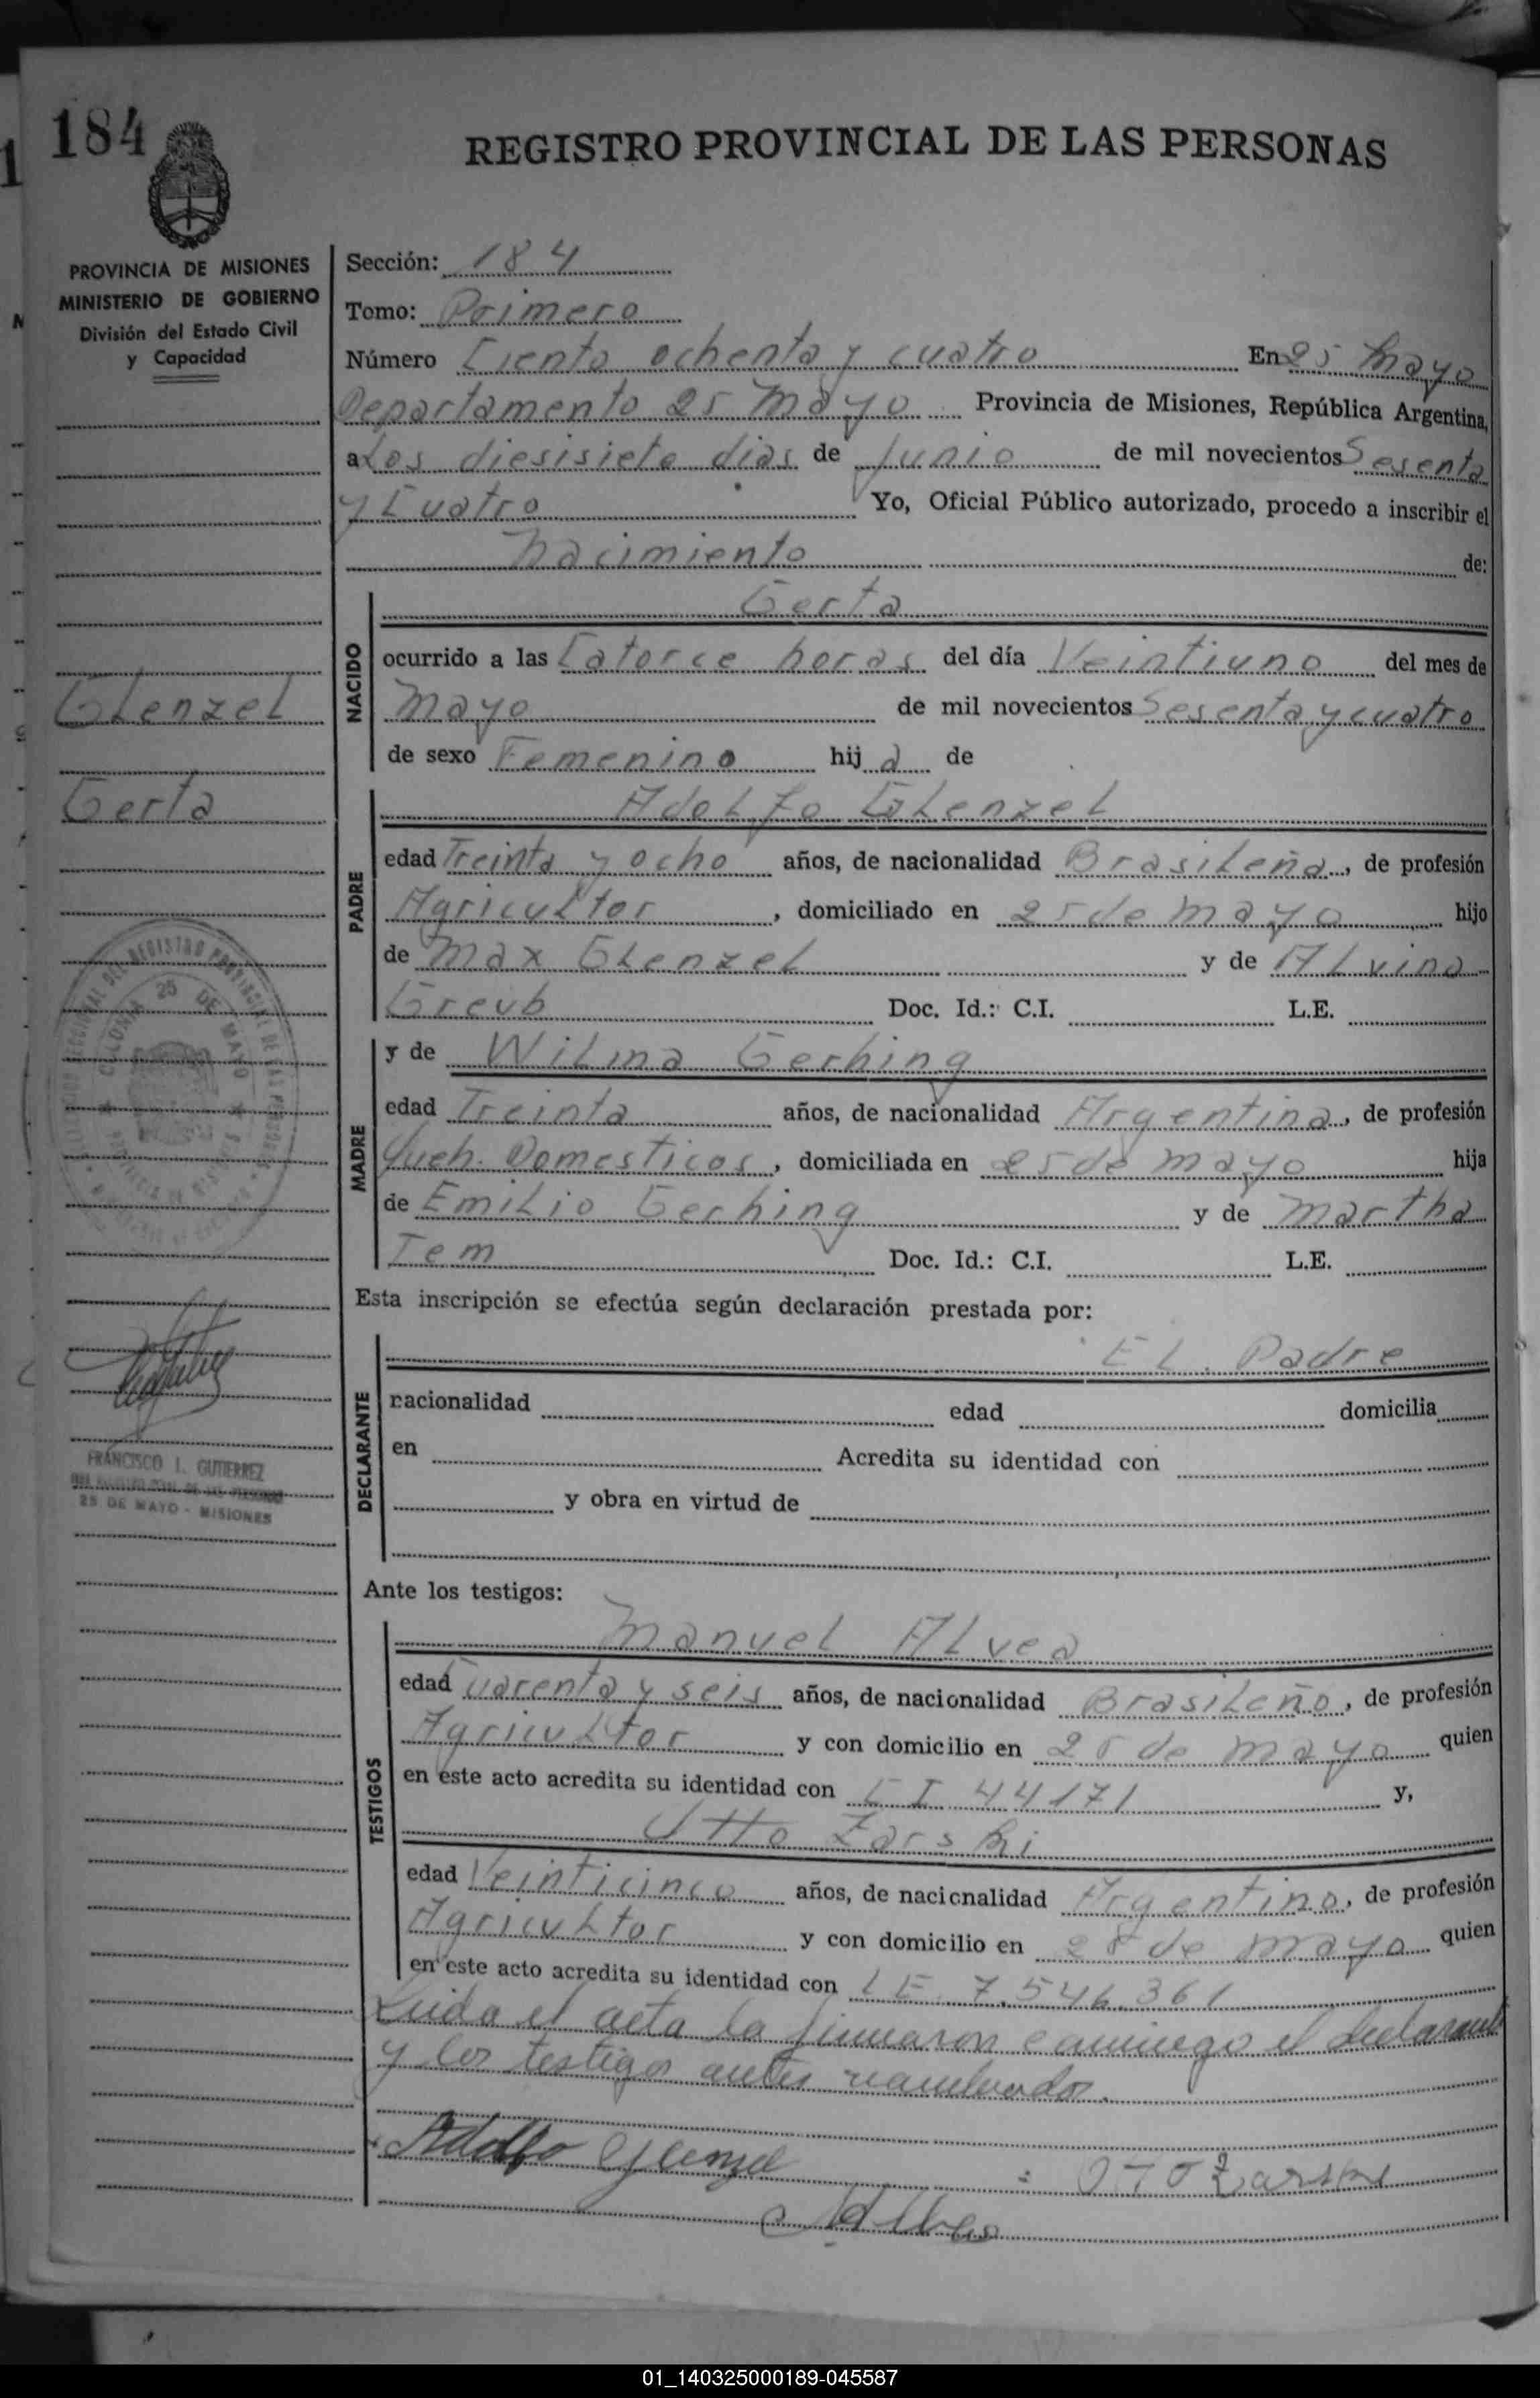 184
REGISTRO PROVINCIAL DE LAS PERSONAS
PROVINCIA DE MISIONES
MINISTERIO DE GOBIERNO
División del Estado Civil
y Capacidad
Glenzel
Gerta
FRANCISCO I. GUTIERREZ
25 DE MAYO - MISIONES
Sección: 184
Tomo: Primero
Número Ciento ochenta y cuatro En 25 Mayo
Departamento 25 Mayo Provincia de Misiones, República Argentina,
a Los diesisiete dias de Junio de mil novecientos Sesenta
y Cuatro Yo, Oficial Público autorizado, procedo a inscribir el
Nacimiento de:
NACIDO
Gerta
ocurrido a las Catorce horas del día Veintiuno del mes de
Mayo de mil novecientos Sesenta y cuatro
de sexo Femenino hija de
PADRE
Adolfo Glenzel
edad Treinta y ocho años, de nacionalidad Brasileña, de profesión
Agricultor, domiciliado en 25 de mayo hijo
de Max Glenzel y de Alvina
Greub Doc. Id.: C.I. L.E.
MADRE
y de Wilma Gerhing
edad Treinta años, de nacionalidad Argentina, de profesión
Queh. Domesticos, domiciliada en 25 de mayo hija
de Emilio Gerhing y de Martha
Tem Doc. Id.: C.I. L.E.
Esta inscripción se efectúa según declaración prestada por:
DECLARANTE
El Padre
nacionalidad edad domicilia
en Acredita su identidad con
y obra en virtud de
Ante los testigos:
TESTIGOS
Manuel Alvea
edad Cuarenta y seis años, de nacionalidad Brasileño, de profesión
Agricultor y con domicilio en 25 de mayo quien
en este acto acredita su identidad con C I 44171 y,
Otto Zarski
edad Veinticinco años, de nacionalidad Argentino, de profesión
Agricultor y con domicilio en 25 de mayo quien
en este acto acredita su identidad con L E 7.546.361
Leida el acta la firmaron conmigo el declarante
y los testigos antes nombrados.
Adolfo Glenzel
Oto Zarski
01_140325000189-045587